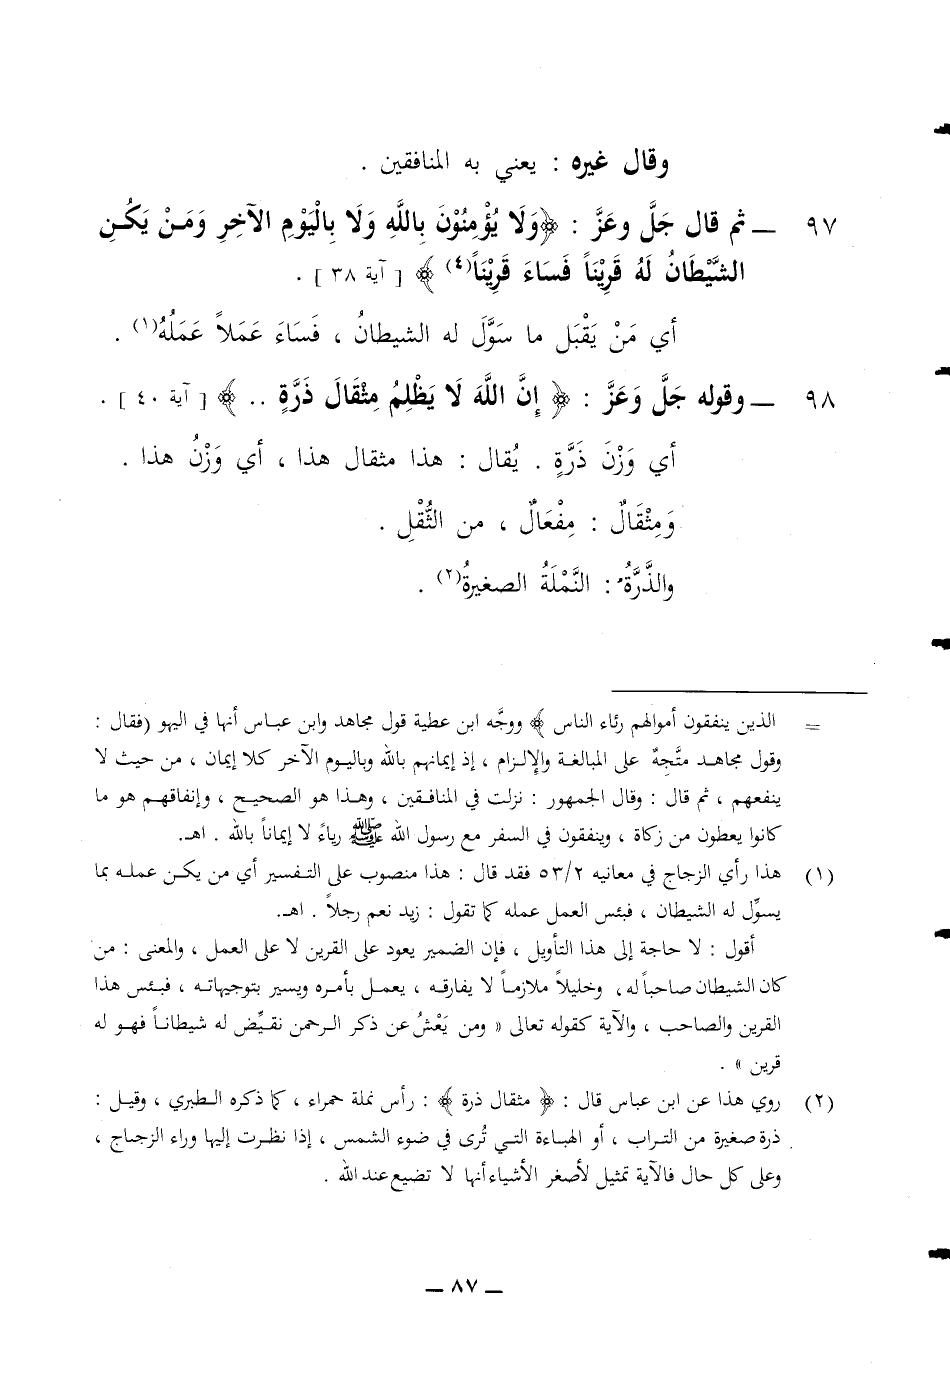 وقال غيره : يعني به المنافقين .
٩٧ ــ ثم قال جَلَّ وعَزَّ : ﴿وَلَا يُؤْمِنُوْنَ بِاللَّهِ وَلَا بِالْيَوْمِ الآخِرِ وَمَنْ يَكُنِ
الشَّيْطَانُ لَهُ قَرِيْنَاً فَسَاءَ قَرِيْنَاً(٤) ﴾ [ آية ٣٨ ] .
أي مَنْ يَقْبَل ما سَوَّلَ له الشيطانُ ، فَسَاءَ عَمَلاً عَمَلُهُ(١) .
٩٨ ــ وقوله جَلَّ وَعَزَّ : ﴿ إِنَّ اللَّهَ لَا يَظْلِمُ مِثْقَالَ ذَرَّةٍ .. ﴾ [ آية ٤٠ ] .
أي وَزْنَ ذَرَّةٍ . يُقال : هذا مثقال هذا ، أي وَزْنُ هذا .
وَمِثْقَالٌ : مِفْعَالٌ ، من الثُّقْلِ .
والذَّرَّةُ : النَّمْلَةُ الصغيرةُ(٢) .
= الذين ينفقون أموالهم رئاء الناس ﴾ ووجَّه ابن عطية قول مجاهد وابن عباس أنها في اليهو (فقال :
وقول مجاهد متَّجِهٌ على المبالغة والإلزام ، إذ إيمانهم بالله وباليوم الآخر كلا إيمان ، من حيث لا
ينفعهم ، ثم قال : وقال الجمهور : نزلت في المنافقين ، وهذا هو الصحيح ، وإنفاقهم هو ما
كانوا يعطون من زكاة ، وينفقون في السفر مع رسول الله ﷺ رياءً لا إيماناً بالله . اهـ.
(١) هذا رأي الزجاج في معانيه ٥٣/٢ فقد قال : هذا منصوب على التفسير أي من يكن عمله بما
يسوِّل له الشيطان ، فبئس العمل عمله كما تقول : زيد نعم رجلاً . اهـ.
أقول : لا حاجة إلى هذا التأويل ، فإن الضمير يعود على القرين لا على العمل ، والمعنى : من
كان الشيطان صاحباً له ، وخليلاً ملازماً لا يفارقه ، يعمل بأمره ويسير بتوجيهاته ، فبئس هذا
القرين والصاحب ، والآية كقوله تعالى « ومن يَعْشُ عن ذكر الرحمن نقيِّض له شيطاناً فهو له
قرين » .
(٢) روي هذا عن ابن عباس قال : ﴿ مثقال ذرة ﴾ : رأس نملة حمراء ، كما ذكره الطبري ، وقيل :
ذرة صغيرة من التراب ، أو الهباءة التي تُرى في ضوء الشمس ، إذا نظرت إليها وراء الزجاج ،
وعلى كل حال فالآية تمثيل لأصغر الأشياء أنها لا تضيع عند الله .
ــ ٨٧ ــ